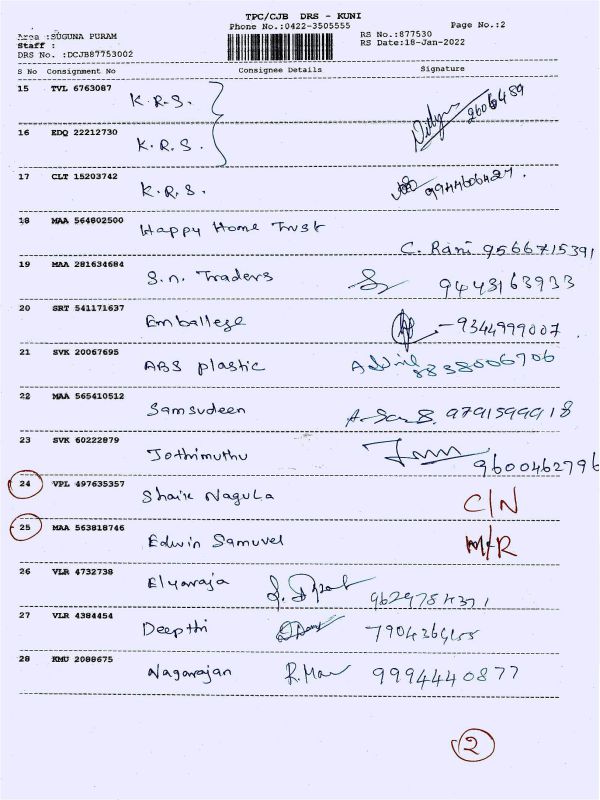 TPC/CJB DRS - KUNI
Phone No.:0422-3505555 Page No.:2
Area :SUGUNA PURAM RS No.:877530
Staff : RS Date:18-Jan-2022
DRS No. :DCJB87753002
S No Consignment No Consignee Details Signature
15 TVL 6763087 K.R.S.
16 EDQ 22212730 K.R.S.
17 CLT 15203742 K.R.S.
18 MAA 564802500 Happy Home Trust C. Rani 9566715391
19 MAA 281634684 S.n. Traders 9443163933
20 SRT 541171637 Emballege 9344999007
21 SVK 20067695 ABS plastic 8838006706
22 MAA 565410512 Samsudeen 9791599918
23 SVK 60222879 Jothimuthu 9600462796
24 VPL 497635357 Shaik Nagula C/N
25 MAA 563818746 Edwin Samuvel
26 VLR 4732738 Elyaraja
27 VLR 4384454 Deepthi
28 KMU 2088675 Nagarajan 9994440877
2